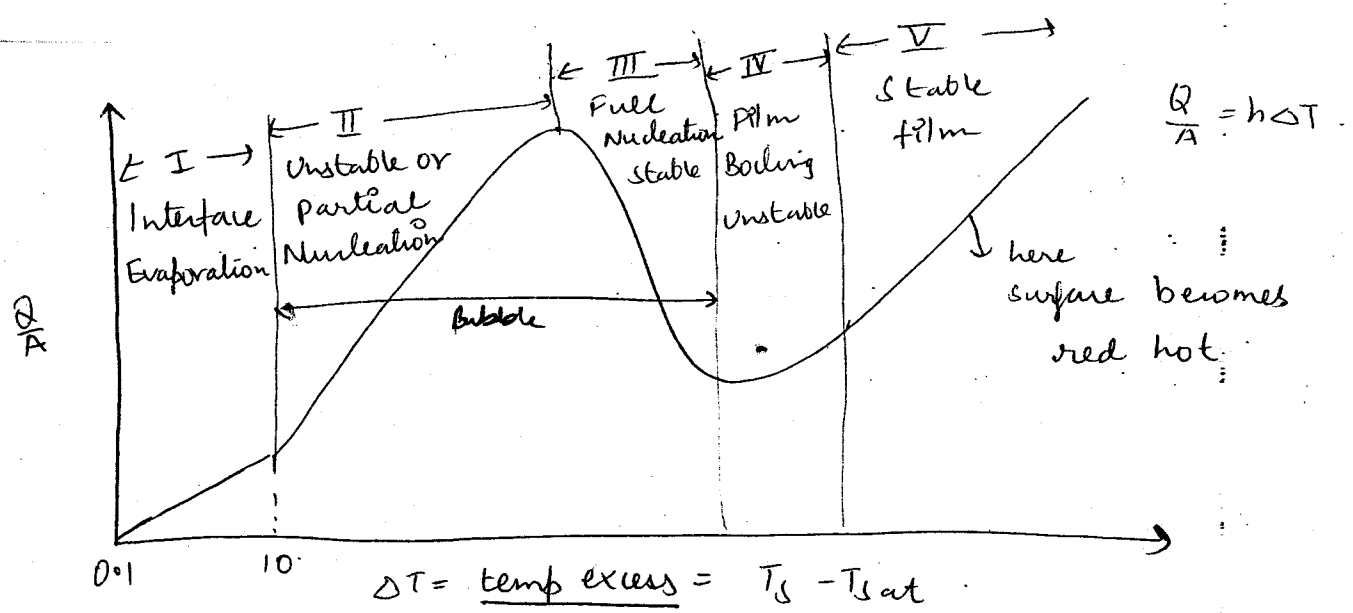 ← I →
Interface
Evaporation
← II →
Unstable or
Partial
Nucleation
← III →
Full
Nucleation
Stable
← IV →
Film
Boiling
Unstable
← V →
Stable
film
Q/A = h△T.
Bubble
here
surface becomes
red hot.
Q/A
0.1
10
△T = temp excess = Ts - Tsat.